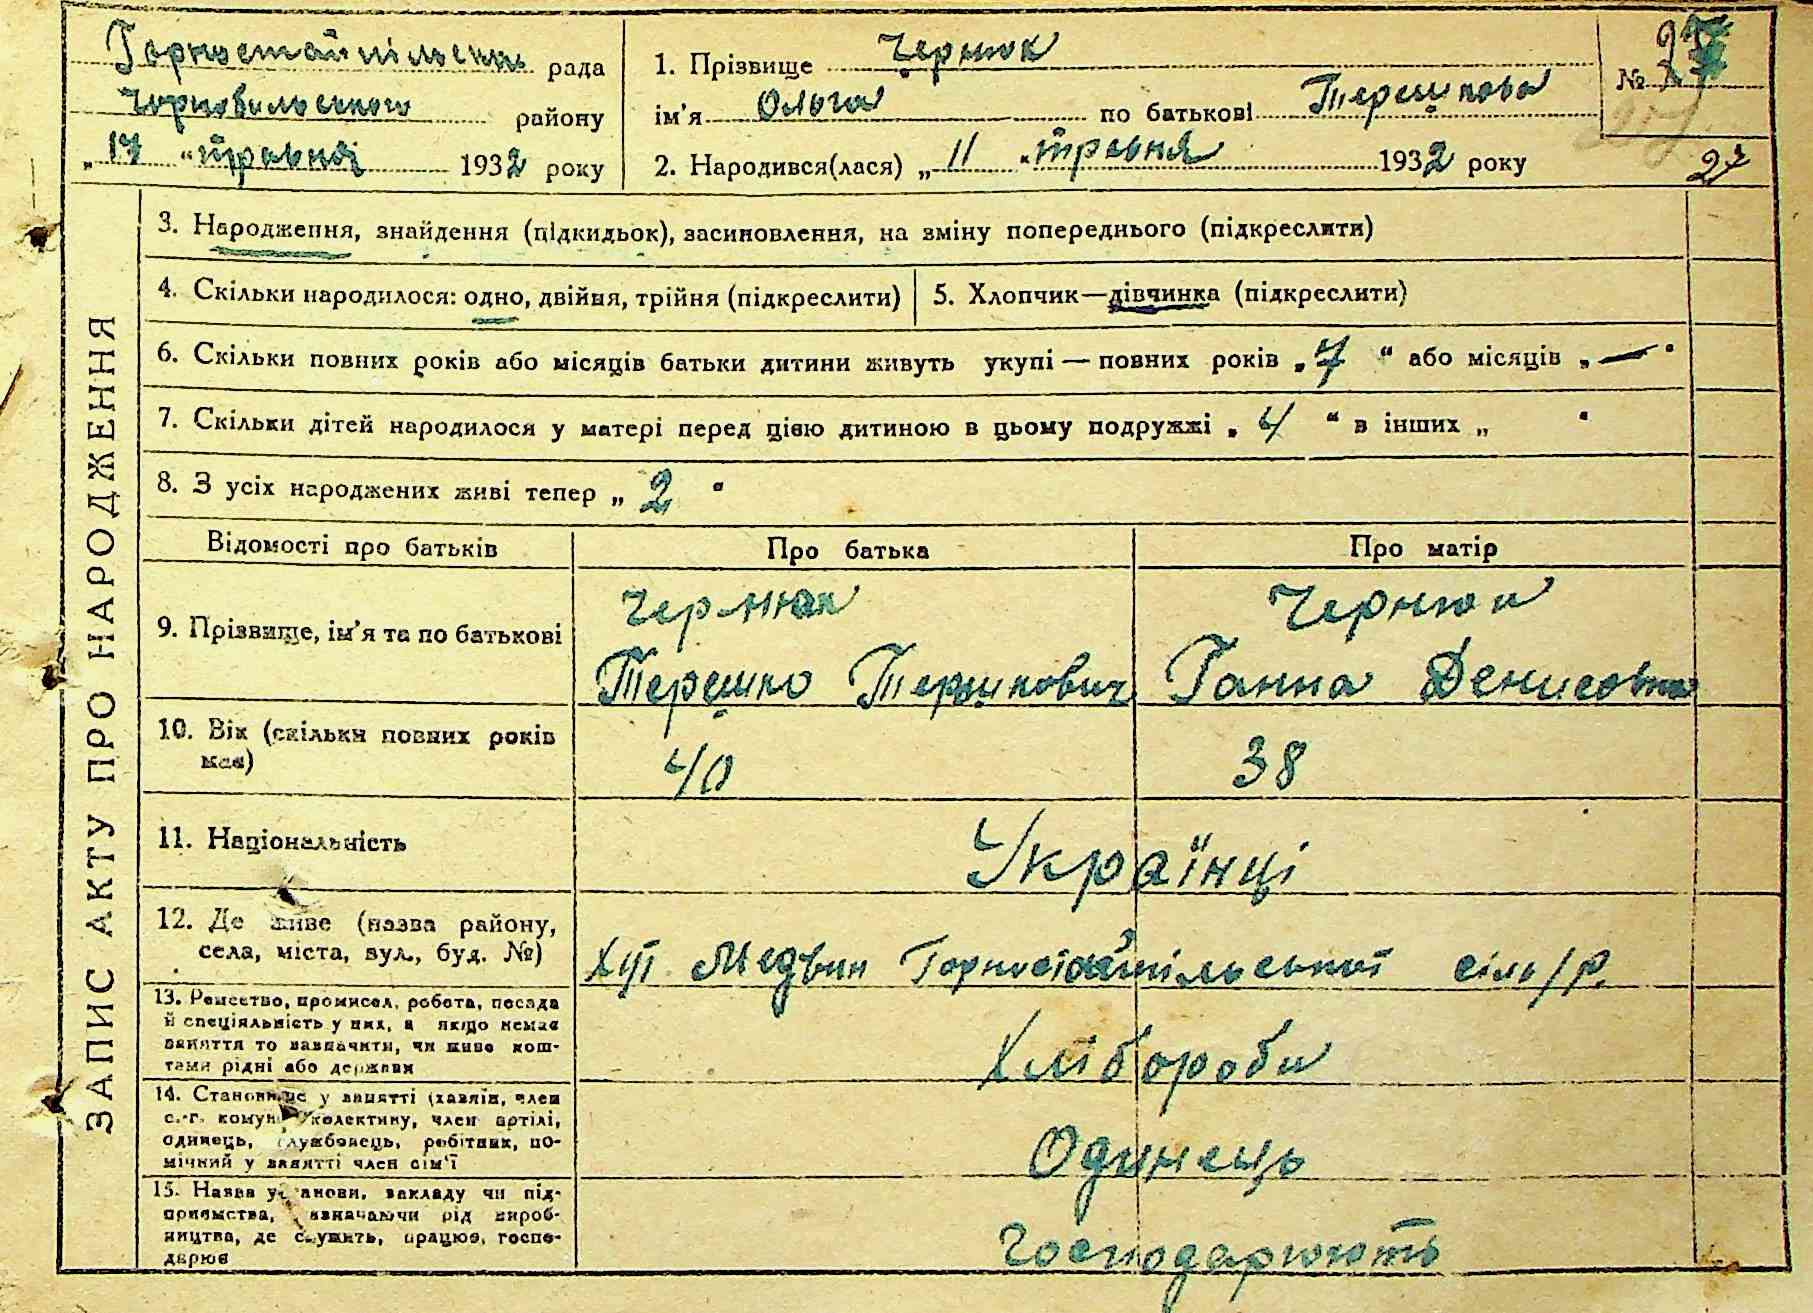 Горностайпільська рада
Чорнобильського району
„17" травня 1932 року
1. Прізвище Чернюк
ім'я Ольга по батькові Терешкова
2. Народився(лася) „11" травня 1932 року
№
27
ЗАПИС АКТУ ПРО НАРОДЖЕННЯ
3. Народження, знайдення (підкидьок), засиновлення, на зміну попереднього (підкреслити)
4. Скільки народилося: одно, двійня, трійня (підкреслити)
5. Хлопчик—дівчинка (підкреслити)
6. Скільки повних років або місяців батьки дитини живуть укупі — повних років „7" або місяців „—"
7. Скільки дітей народилося у матері перед цією дитиною в цьому подружжі „4" в інших „ "
8. З усіх народжених живі тепер „2"
Відомості про батьків Про батька Про матір
9. Прізвище, ім'я та по батькові
Чернюк
Терешко Терешкович
Чернюк
Ганна Денисовна
10. Вік (скільки повних років
має)
40 38
11. Національність
Українці
12. Де живе (назва району,
села, міста, вул., буд. №)
Хут. Медвин Горностайпільської сіль/р.
13. Ремество, промисел, робота, посада
й спеціяльність у них, а якщо немає
заняття то зазначити, чи живе кош-
тами рідні або держави
Хлібороби
14. Становище у занятті (хазяїн, член
с.-г. комуни, колективу, член артілі,
одинець, службовець, робітник, по-
мічний у занятті член сім'ї
Одинець
15. Назва установи, закладу чи під-
приємства, зазначаючи рід вироб-
ництва, де служить, працює, госпо-
дарює
Господарюють